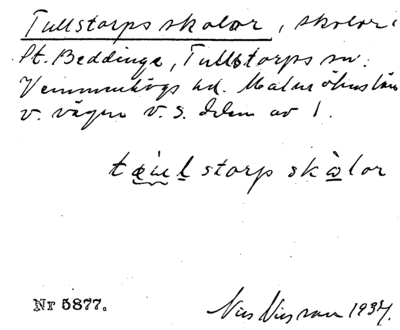 Tullstorps skolor, skolor
St. Beddinge, Tullstorps sn.
Vemmenhögs hd. Malmöhus län
v. vägen v. s. delen av 1.
tæ̀u̯l storp skὼlor
Nr 5877.
Nils Nilsson 1934.